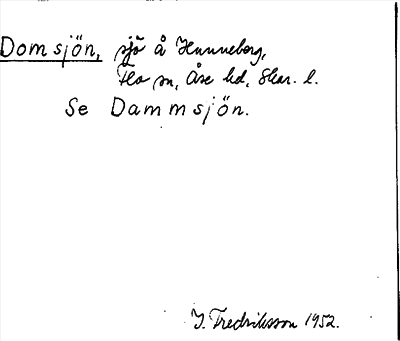 Domsjön, sjö å Hunneberg,
Flo sn, Åse hd, Skar. l.
Se Dammsjön.
I. Fredriksson 1952.